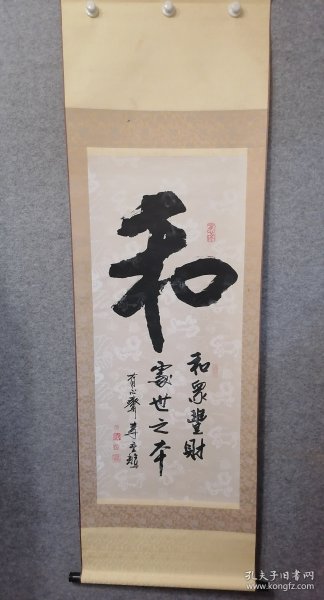 和
和眾豐財
處世之本
有心齋
孔夫子旧书网
www.kongfz.com